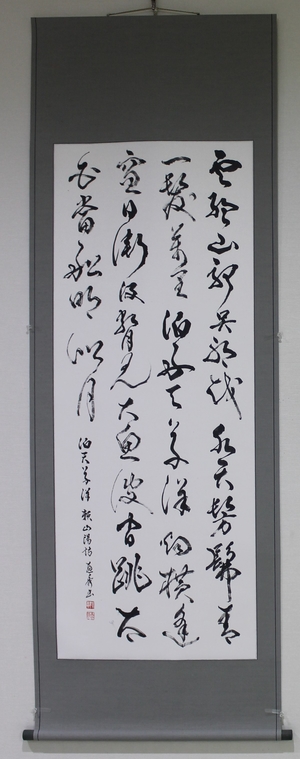 雲耶山耶呉耶越水天髣髴青
一髪萬里泊舟天草洋烟横篷
窓日漸没瞥見大魚波間跳太
白當船明似月
泊天草洋 頼山陽詩